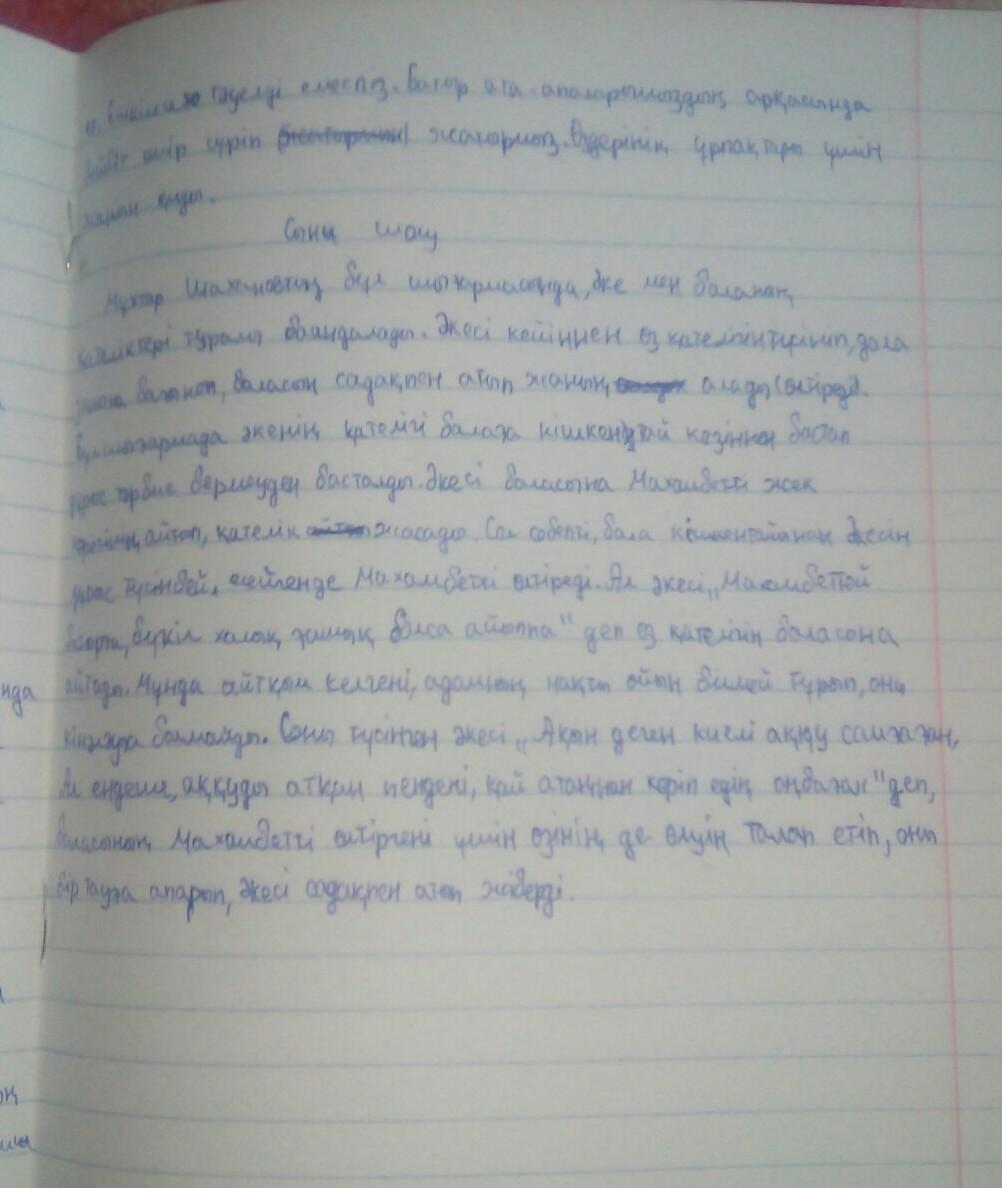 ешкімге тәуелді емеспіз. Батыр ата-апаларымыздың арқасында
өмір сүріп жатырмыз. Өздерінің ұрпақтары үшін
жанын қиды.
Сыни шолу
Мұхтар Шахановтың бұл шығармасында, Әке мен баланың
қателіктері туралы баяндалады. Әкесі кейіннен өз қателігін түсініп, дала
заңына бағынып, баласын садақпен атып жанын алады (өлтіреді).
Бұл шығармада әкенің қателігі балаға кішкентай кезінен бастап
дұрыс тәрбие бермеуден басталды. Әкесі баласына Махамбетті жек
көретінін айтып, қателік жасады. Сол себепті, бала кішкентайынан Әкесін
дұрыс түсінбей, есейгенде Махамбетті өлтіреді. Ал әкесі „Махамбеттей
батырға, бүкіл халық ғашық болса айыппа" деп өз қателігін баласына
айтады. Мұнда айтқым келгені, адамның нақты ойын білмей тұрып, оны
кінәлауға болмайды. Соны түсінген әкесі „Ақын деген киелі аққу самғаған,
Ал ендеше, аққуды атқан пендені, қай атаңнан көріп едің оңбаған" деп,
баласының Махамбетті өлтіргені үшін өзінің де өлуін талап етіп, оны
бір тауға апарып, Әкесі садақпен атып жіберді.
нда